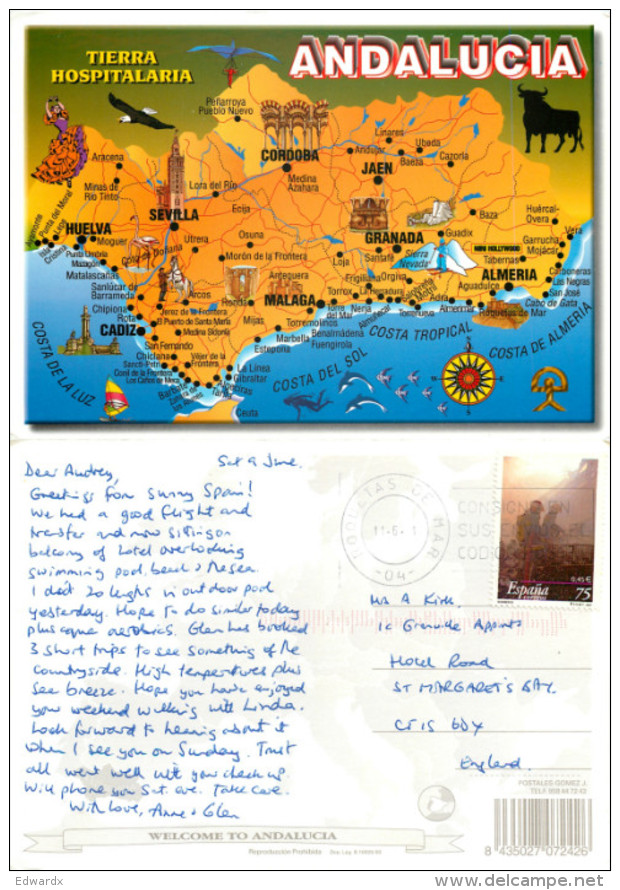 TIERRA
HOSPITALARIA
ANDALUCIA
Peñarroya
Pueblo Nuevo
CORDOBA
Medina
Azahara
Linares
Andujar
Ubeda
Baeza
Cazorla
JAEN
Aracena
Minas de
Rio Tinto
Lora del Río
SEVILLA
Ecija
Osuna
Utrera
Morón de la Frontera
Ayamonte
Isla Cristina
Lepe
Punta del Moral
HUELVA
Moguer
Punta Umbría
Mazagón
Matalascañas
Coto de Doñana
Sanlúcar de
Barrameda
Chipiona
Rota
CADIZ
Arcos
Jerez de la Frontera
El Puerto de Santa María
Medina Sidonia
San Fernando
Chiclana
Sancti-Petri
Conil de la Frontera
Los Caños de Meca
Véjer de la
Frontera
Barbate
Zahara de
los Atunes
Tarifa
Algeciras
La Línea
Gibraltar
Ceuta
Ronda
Mijas
Estepona
Marbella
Fuengirola
Benalmádena
Torremolinos
MALAGA
Antequera
Torre
del Mar
Torrox
Nerja
Frigiliana
Almuñécar
Loja
Santafe
GRANADA
Sierra
Nevada
Guadix
Baza
Lanjarón
Orgiva
Motril
Torrenueva
Adra
Almerimar
Aguadulce
Roquetas de Mar
ALMERIA
Tabernas
MINI HOLLYWOOD
Huércal-
Overa
Vera
Garrucha
Mojácar
Carboneras
Las Negras
San José
Cabo de Gata
COSTA DE LA LUZ
COSTA DEL SOL
COSTA TROPICAL
COSTA DE ALMERIA
Sat 9 June.
Dear Audrey,
Greetings from sunny Spain!
We had a good flight and
transfer and now sitting on
balcony of hotel overlooking
swimming pool, beach & the sea.
I did 20 lengths in outdoor pool
yesterday. Hope to do similar today
plus aqua aerobics. Glen has booked
3 short trips to see something of the
countryside. High temperatures plus
sea breeze. Hope you have enjoyed
your weekend walking with Linda.
Look forward to hearing about it
when I see you on Sunday. Trust
all went well with your check up.
Will phone you Sat. eve. Take care.
With love, Anne & Glen
ROQUETAS DE MAR
11-6-1
-04-
CONSIGNE EN
SUS ENVIOS EL
CODIGO
0,45 €
España
correos
75
Mrs A Kirk
1c Granville Appmts
Hotel Road
ST MARGARET'S BAY
CT15 6DX
England.
POSTALES GOMEZ J.
WELCOME TO ANDALUCIA
Reproducción Prohibida
8 435027 072426
Edwardx
delcampe.net